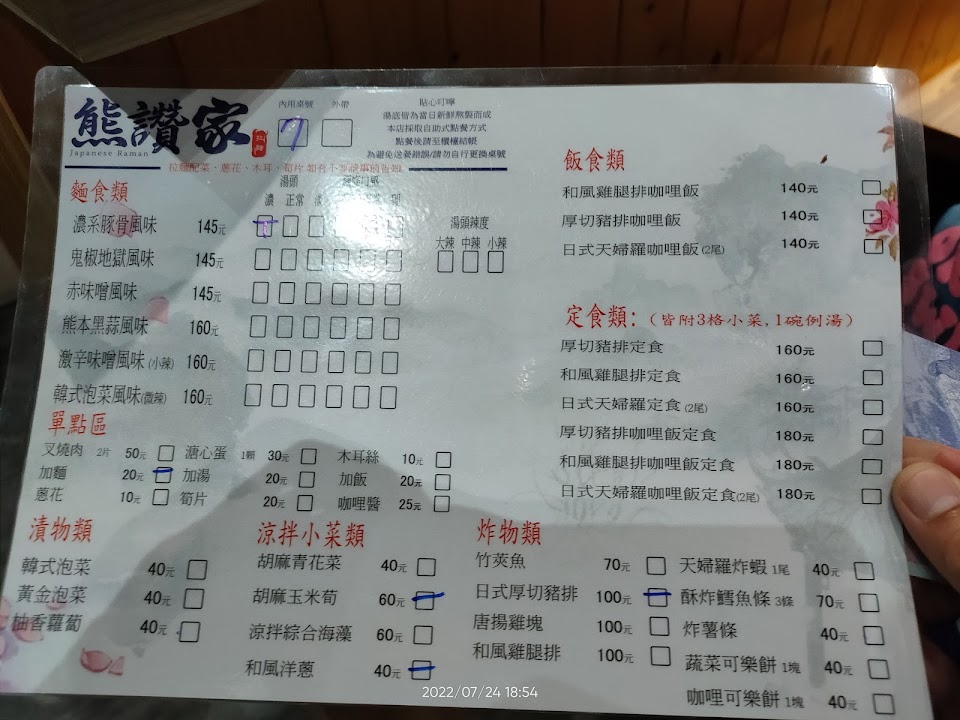 熊讚家
Japanese Raman
內用桌號 外帶
7
貼心叮嚀
湯底皆為當日新鮮熬製而成
本店採取自助式點餐方式
點餐後請至櫃檯結帳
為避免送餐錯誤/請勿自行更換桌號
拉麵配菜、蔥花、木耳、筍片
麵食類
湯頭
濃 正常
湯頭辣度
大辣 中辣 小辣
濃系豚骨風味 145元
鬼椒地獄風味 145元
赤味噌風味 145元
熊本黑蒜風味 160元
激辛味噌風味(小辣) 160元
韓式泡菜風味(微辣) 160元
單點區
叉燒肉 2片 50元 溏心蛋 1顆 30元 木耳絲 10元
加麵 20元 加湯 20元 加飯 20元
蔥花 10元 筍片 20元 咖哩醬 25元
漬物類
韓式泡菜 40元
黃金泡菜 40元
柚香蘿蔔 40元
涼拌小菜類
胡麻青花菜 40元
胡麻玉米筍 60元
涼拌綜合海藻 60元
和風洋蔥 40元
炸物類
竹莢魚 70元
日式厚切豬排 100元
唐揚雞塊 100元
和風雞腿排 100元
天婦羅炸蝦 1尾 40元
酥炸鱈魚條 3條 70元
炸薯條 40元
蔬菜可樂餅 1塊 40元
咖哩可樂餅 1塊 40元
飯食類
和風雞腿排咖哩飯 140元
厚切豬排咖哩飯 140元
日式天婦羅咖哩飯(2尾) 140元
定食類:(皆附3格小菜,1碗例湯)
厚切豬排定食 160元
和風雞腿排定食 160元
日式天婦羅定食(2尾) 160元
厚切豬排咖哩飯定食 180元
和風雞腿排咖哩飯定食 180元
日式天婦羅咖哩飯定食(2尾) 180元
2022/07/24 18:54